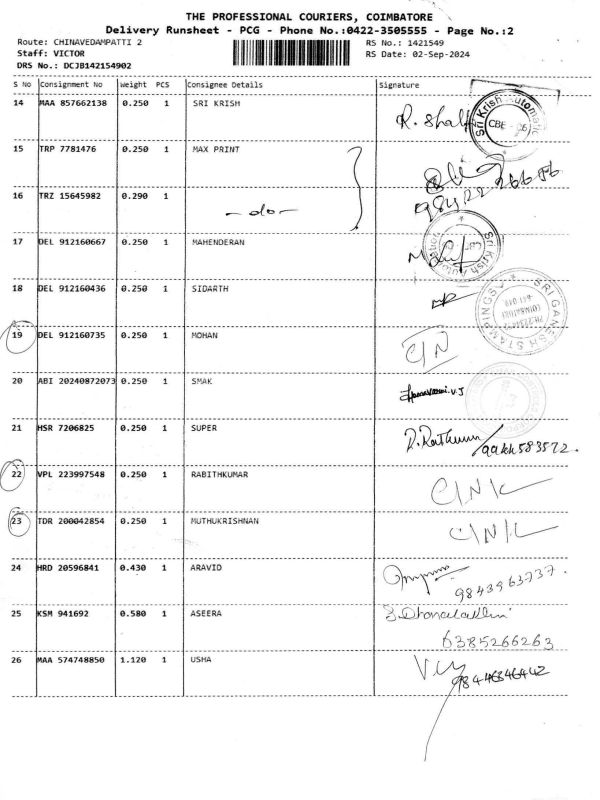 THE PROFESSIONAL COURIERS, COIMBATORE
Delivery Runsheet - PCG - Phone No.:0422-3505555 - Page No.:2
Route: CHINAVEDAMPATTI 2 RS No.: 1421549
Staff: VICTOR RS Date: 02-Sep-2024
DRS No.: DCJB142154902
S No Consignment No Weight PCS Consignee Details Signature
14 MAA 857662138 0.250 1 SRI KRISH
15 TRP 7781476 0.250 1 MAX PRINT
16 TRZ 15645982 0.290 1 -do-
17 DEL 912160667 0.250 1 MAHENDERAN
18 DEL 912160436 0.250 1 SIDARTH
SRI GANESH STAMPINGS
19 DEL 912160735 0.250 1 MOHAN C/N
20 ABI 20240872073 0.250 1 SMAK
21 HSR 7206825 0.250 1 SUPER
22 VPL 223997548 0.250 1 RABITHKUMAR C/N/L
23 TDR 200042854 0.250 1 MUTHUKRISHNAN C/N/L
24 HRD 20596841 0.430 1 ARAVID
9843963737.
25 KSM 941692 0.580 1 ASEERA
6385266263
26 MAA 574748850 1.120 1 USHA